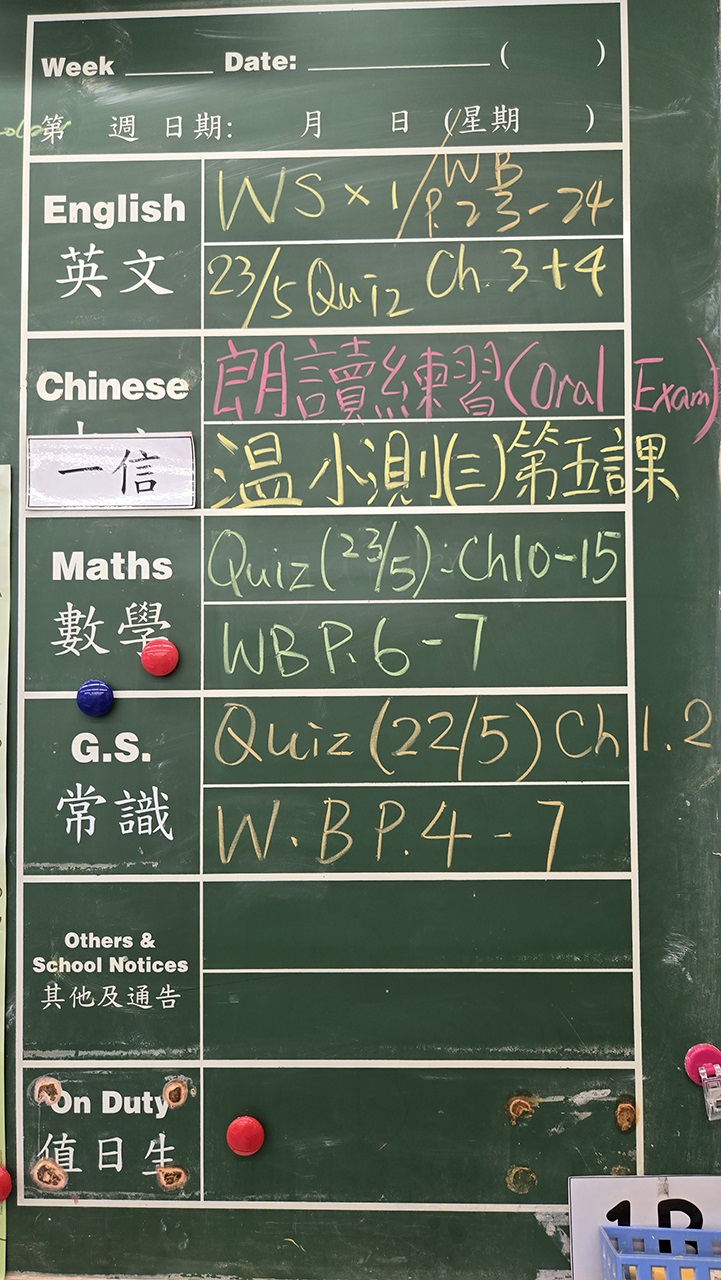 Week ______ Date: ______________ (      )
第 週 日期: 月 日 (星期 )
English
英文
WS × 1 / WB P.23-24
23/5 Quiz Ch.3+4
Chinese
一信
朗讀練習(Oral Exam)
温小測(三)第五課
Maths
數學
Quiz(23/5):Ch10-15
WBP.6-7
G.S.
常識
Quiz(22/5)Ch1.2
W.BP.4-7
Others &
School Notices
其他及通告
On Duty
值日生